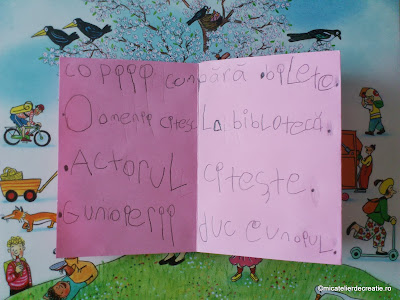 copiii cumpără bilete.
Oamenii citesc La bibLotecă.
ACTORUL citește.
GUNOIERII duc GUNOIUL.
©micatelierdecreatie.ro